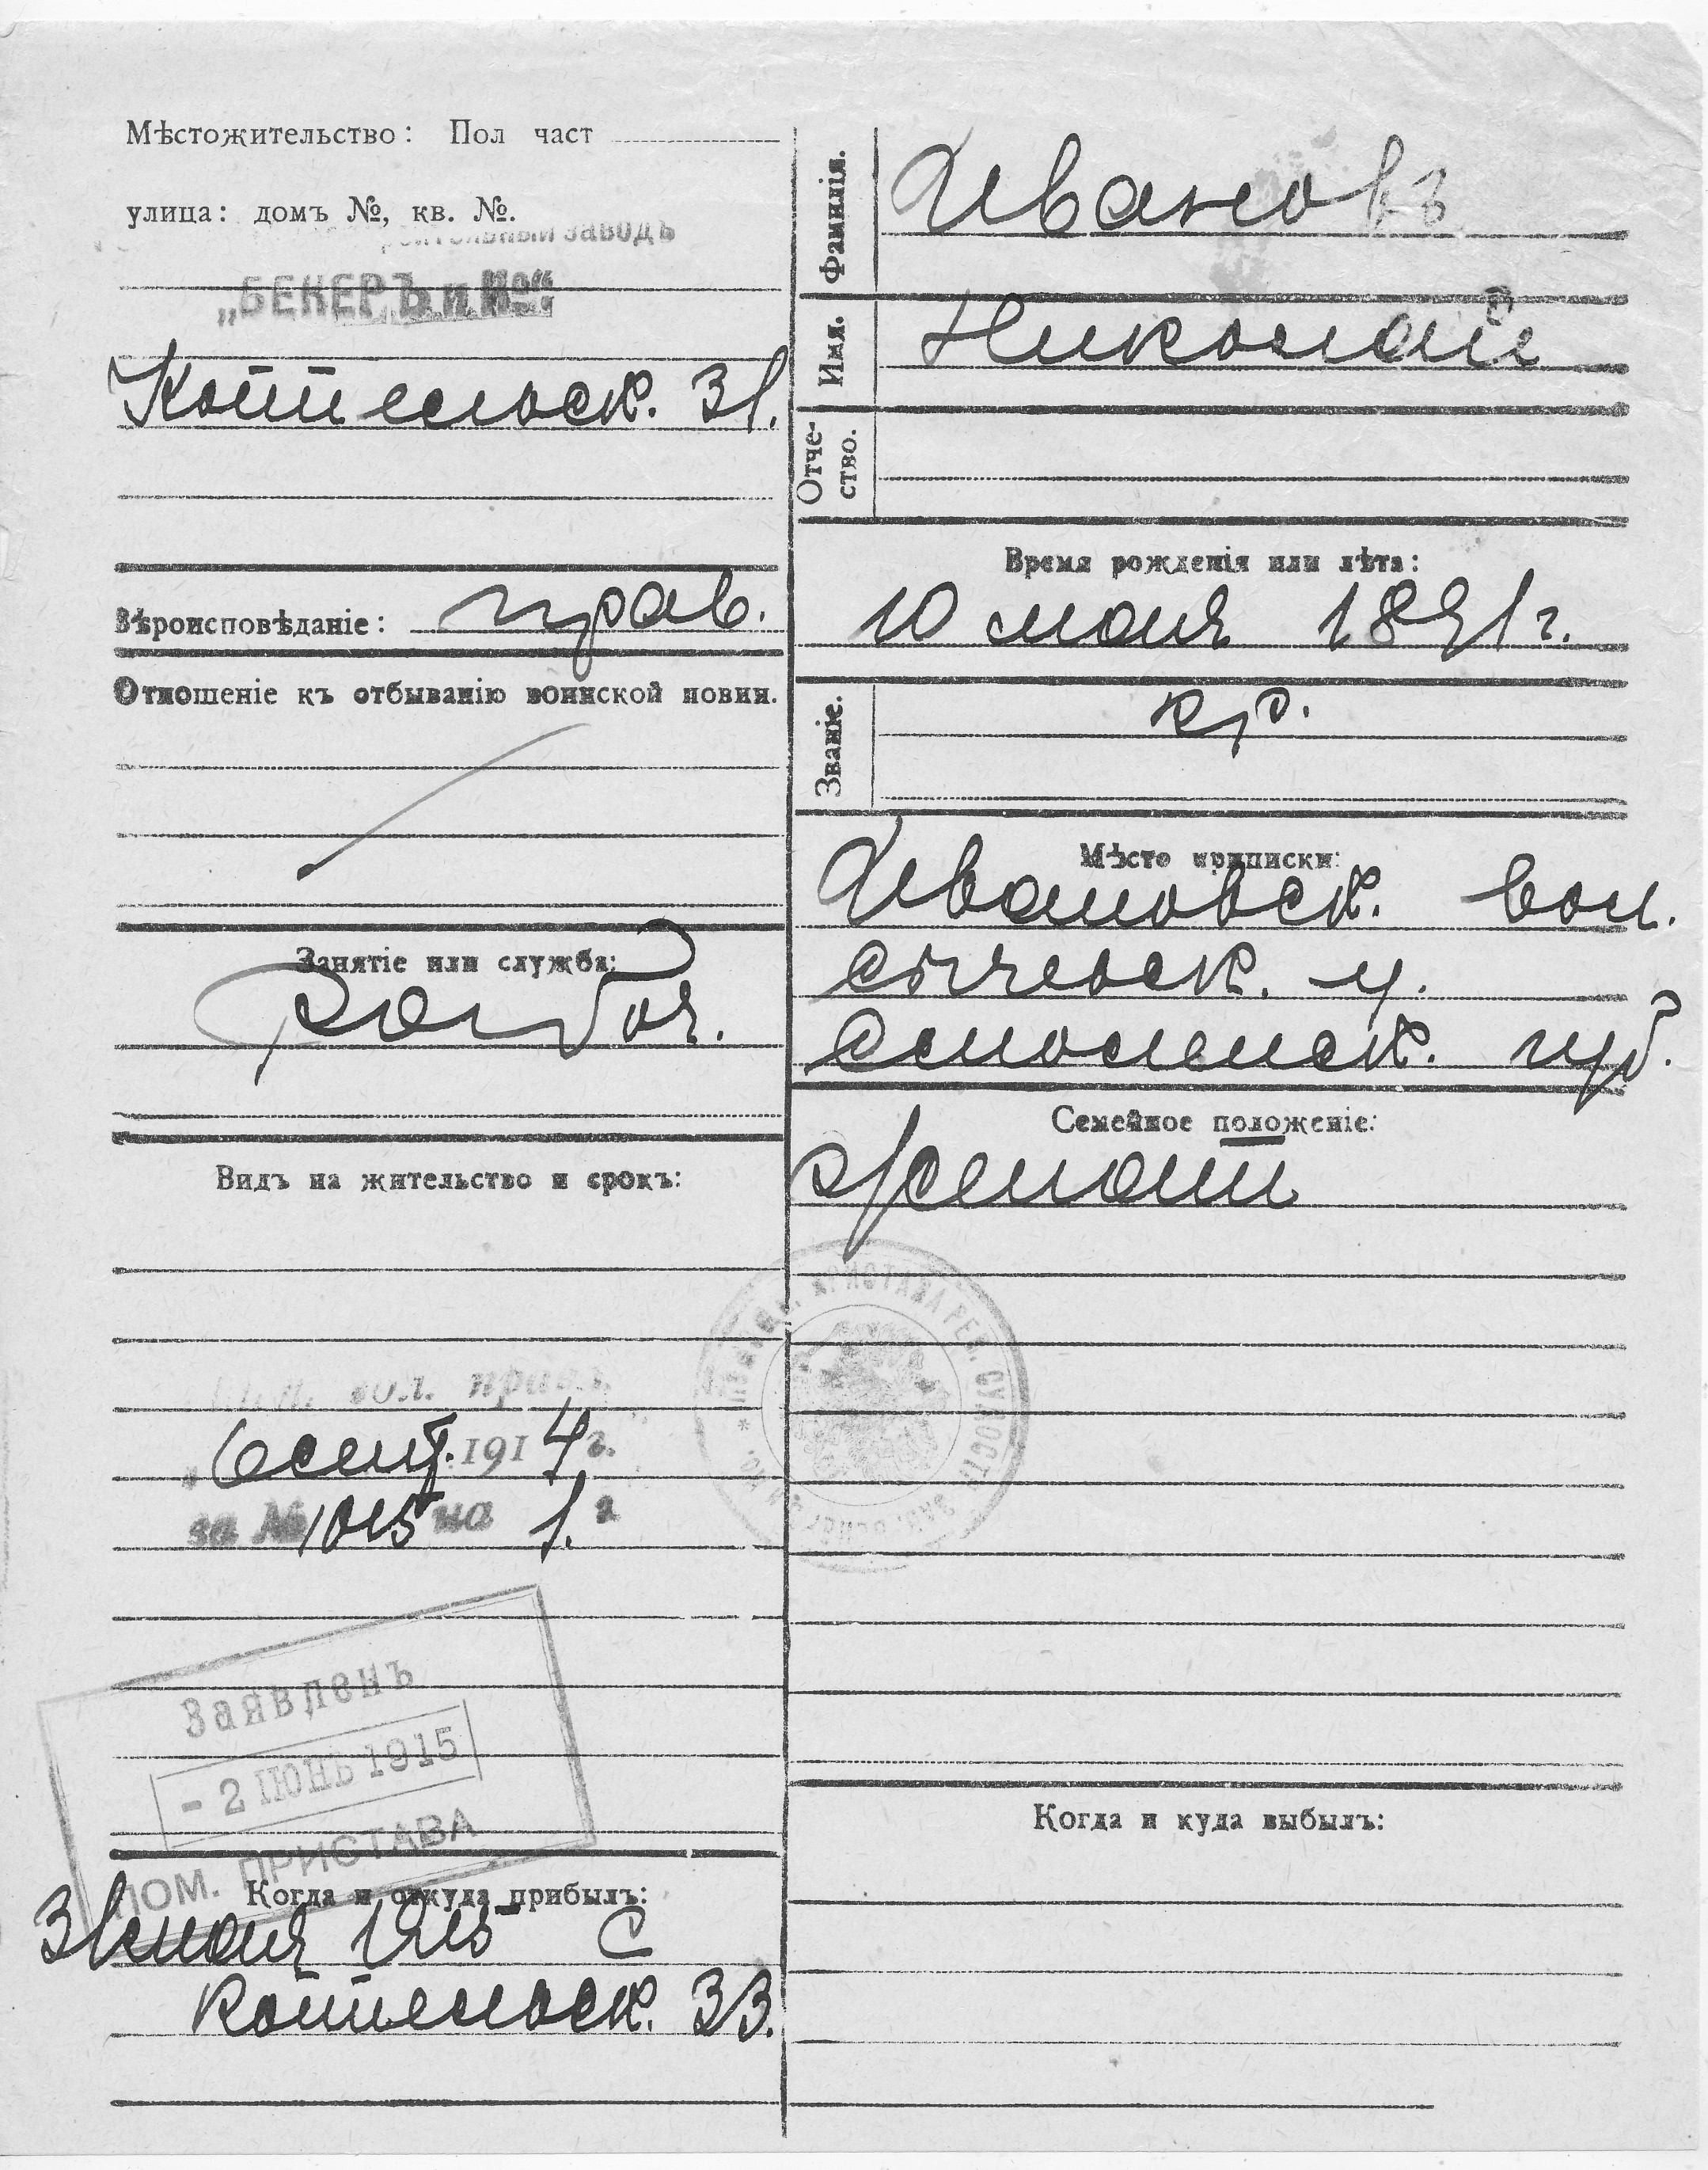 Мѣстожительство: Пол част
улица: домъ №, кв. №.
заводъ
„БЕКЕРЪ и К°“.
Котельск. 31.
Вѣроисповѣданіе: прав.
Отношеніе къ отбыванію воинской повин.
Занятіе или служба:
Рабоч.
Видъ на жительство и срокъ:
вол. прав.
6 сент. 1914 г.
за № 1015 на 1 г
Заявленъ
- 2 ІЮНЬ 1915
ПОМ. ПРИСТАВА
Когда и откуда прибылъ:
31 мая 1915 с
Котельск. 33.
Фамилія. Ивановъ
Имя. Николай
Отче-
ство.
Время рожденія или лѣта:
10 мая 1891 г.
Званіе. кр.
Мѣсто приписки:
Ивановск. вол.
Сычевск. у.
Смоленск. губ.
Семейное положеніе:
женат
ПРИСТАВА РЕВ. СУДОСТР. ЗАВ.
Когда и куда выбылъ: